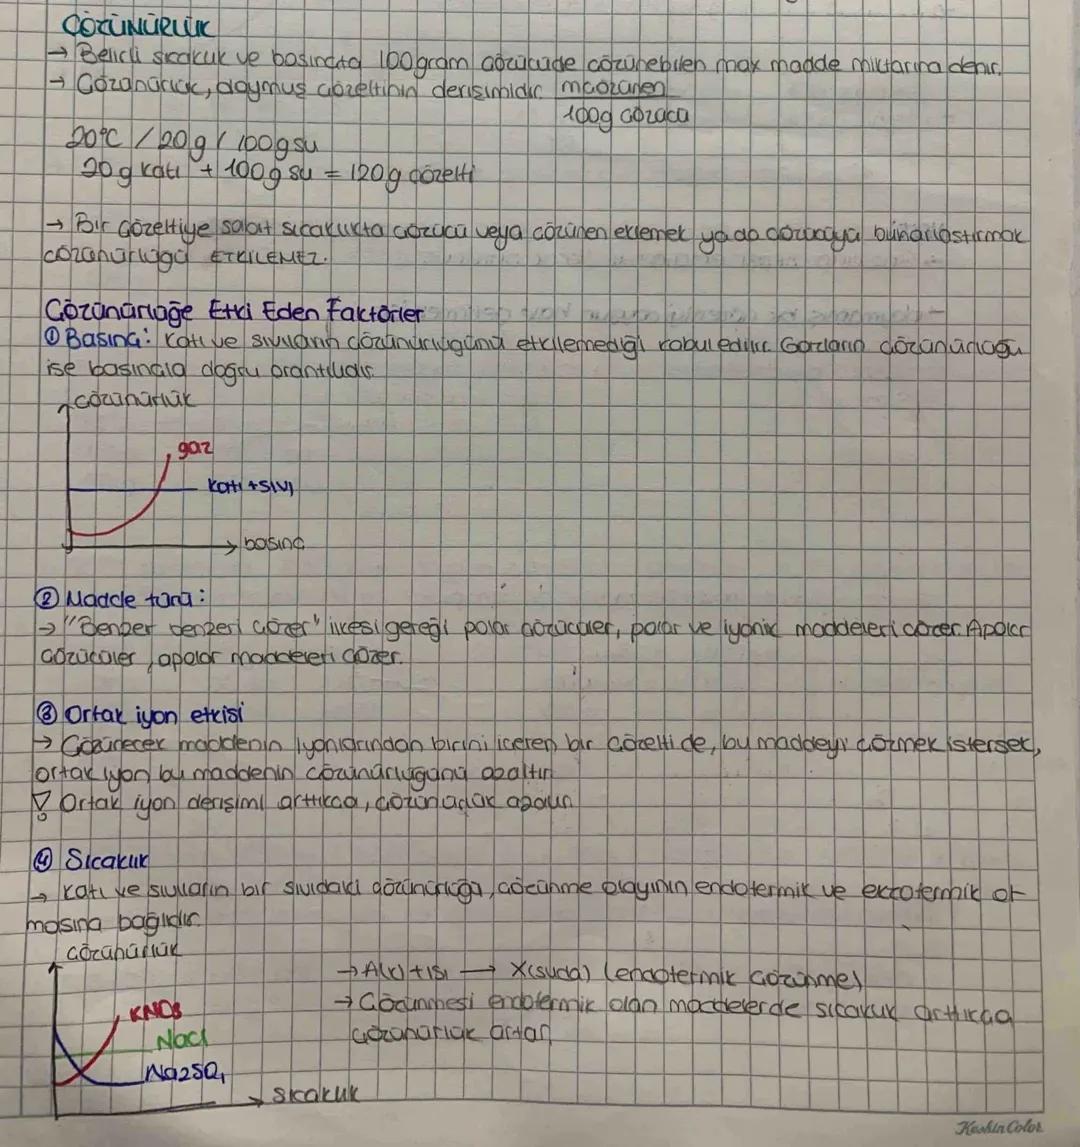 ÇÖZÜNÜRLÜK
→ Belirli sıcaklık ve basınçta 100gram çözücüde çözünebilen max madde miktarına denir.
→ Çözünürlük, doymuş çözeltinin derişimidir. mçözünen
100g çözücü
20°C / 20g / 100gsu
20g katı + 100g su = 120g çözelti
→ Bir çözeltiye sabit sıcaklıkta çözücü veya çözünen eklemek ya da çözücüyü buharlaştırmak
çözünürlüğü ETKİLEMEZ.
Çözünürlüğe Etki Eden Faktörler
① Basınç: Katı ve sıvıların çözünürlüğünü etkilemediği kabul edilir. Gazların çözünürlüğü
ise basınçla doğru orantılıdır.
çözünürlük
gaz
katı + sıvı
basınç
② Madde türü:
→ "Benzer benzeri çözer" ilkesi gereği polar çözücüler, polar ve iyonik maddeleri çözer. Apolar
çözücüler, apolar maddeleri çözer.
③ Ortak iyon etkisi
→ Çözünecek maddenin iyonlarından birini içeren bir çözeltide, bu maddeyi çözmek istersek,
ortak iyon bu maddenin çözünürlüğünü azaltır.
! Ortak iyon derişimi arttıkça, çözünürlük azalır.
④ Sıcaklık
→ Katı ve sıvıların bir sıvıdaki çözünürlüğü, çözünme olayının endotermik ve ekzotermik ol
masına bağlıdır.
çözünürlük
→ A(k) + ISI → X(suda) (endotermik çözünme)
→ Çözünmesi endotermik olan maddelerde sıcaklık arttıkça
çözünürlük artar.
KNO3
NaCl
Na2SO4
sıcaklık
Keskin Color